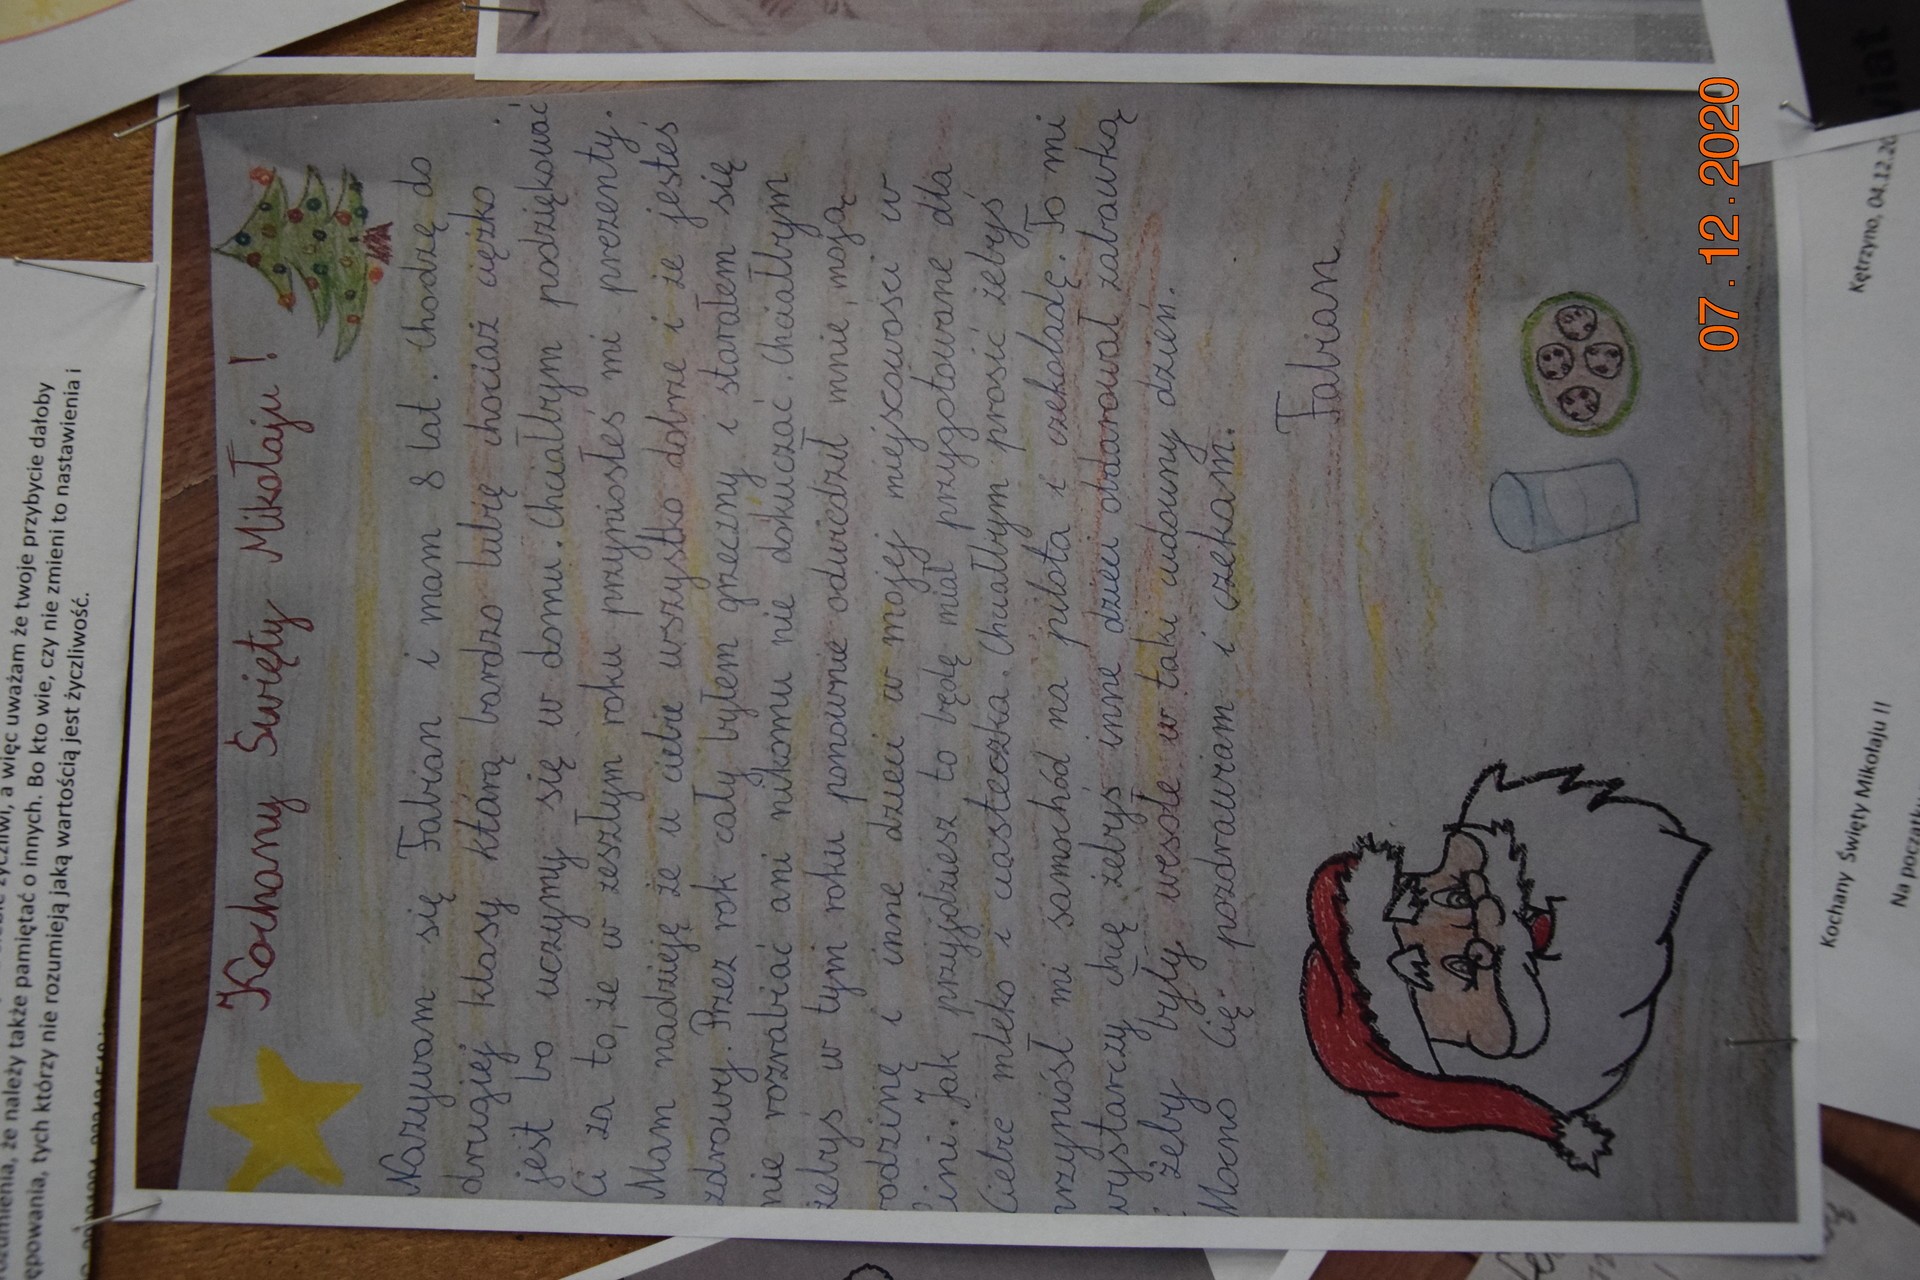 Kochany Święty Mikołaju!
Nazywam się Fabian i mam 8 lat. Chodzę do
drugiej klasy którą bardzo lubię chociaż ciężko
jest bo uczymy się w domu. Chciałbym podziękować
Ci za to, że w zeszłym roku przyniosłeś mi prezenty.
Mam nadzieję że u ciebie wszystko dobrze i że jesteś
zdrowy. Przez rok cały byłem grzeczny i starałem się
nie rozrabiać ani nikomu nie dokuczać. Chciałbym
żebyś w tym roku ponownie odwiedził mnie, moją
rodzinę i inne dzieci w mojej miejscowości w
Lini. Jak przyjdziesz to będę miał przygotowane dla
Ciebie mleko i ciasteczka. Chciałbym prosić żebyś
przyniósł mi samochód na pilota i czekoladę. To mi
wystarczy chcę żebyś inne dzieci obdarował zabawką
żeby były wesołe w taki cudowny dzień.
Mocno Cię pozdrawiam i czekam.
Fabian
07.12.2020
życzliwi, a więc uważam że twoje przybycie dałoby
że należy także pamiętać o innych. Bo kto wie, czy nie zmieni to nastawienia i
tych którzy nie rozumieją jaką wartością jest życzliwość.
Kętrzyno, 04.12.20
Kochany Święty Mikołaju !!
Na początku